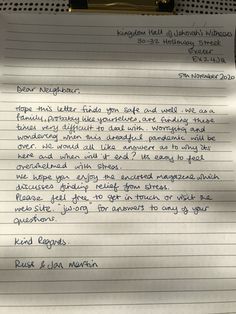 Kingdom Hall of Jehovah's Witnesses
30-32 Holloway Street
Exeter
EX2 4JD
5th November 2020
Dear Neighbour,
Hope this letter finds you safe and well. We as a
family, probably like yourselves, are finding these
times very difficult to deal with. Worrying and
wondering when this dreadful pandemic will be
over. We would all like answers as to why its
here and when will it end? Its easy to feel
overwhelmed with stress.
We hope you enjoy the enclosed magazine which
discusses finding relief from stress.
Please feel free to get in touch or visit the
web site. "jw.org" for answers to any of your
questions.
Kind Regards.
Russ & Jan Martin